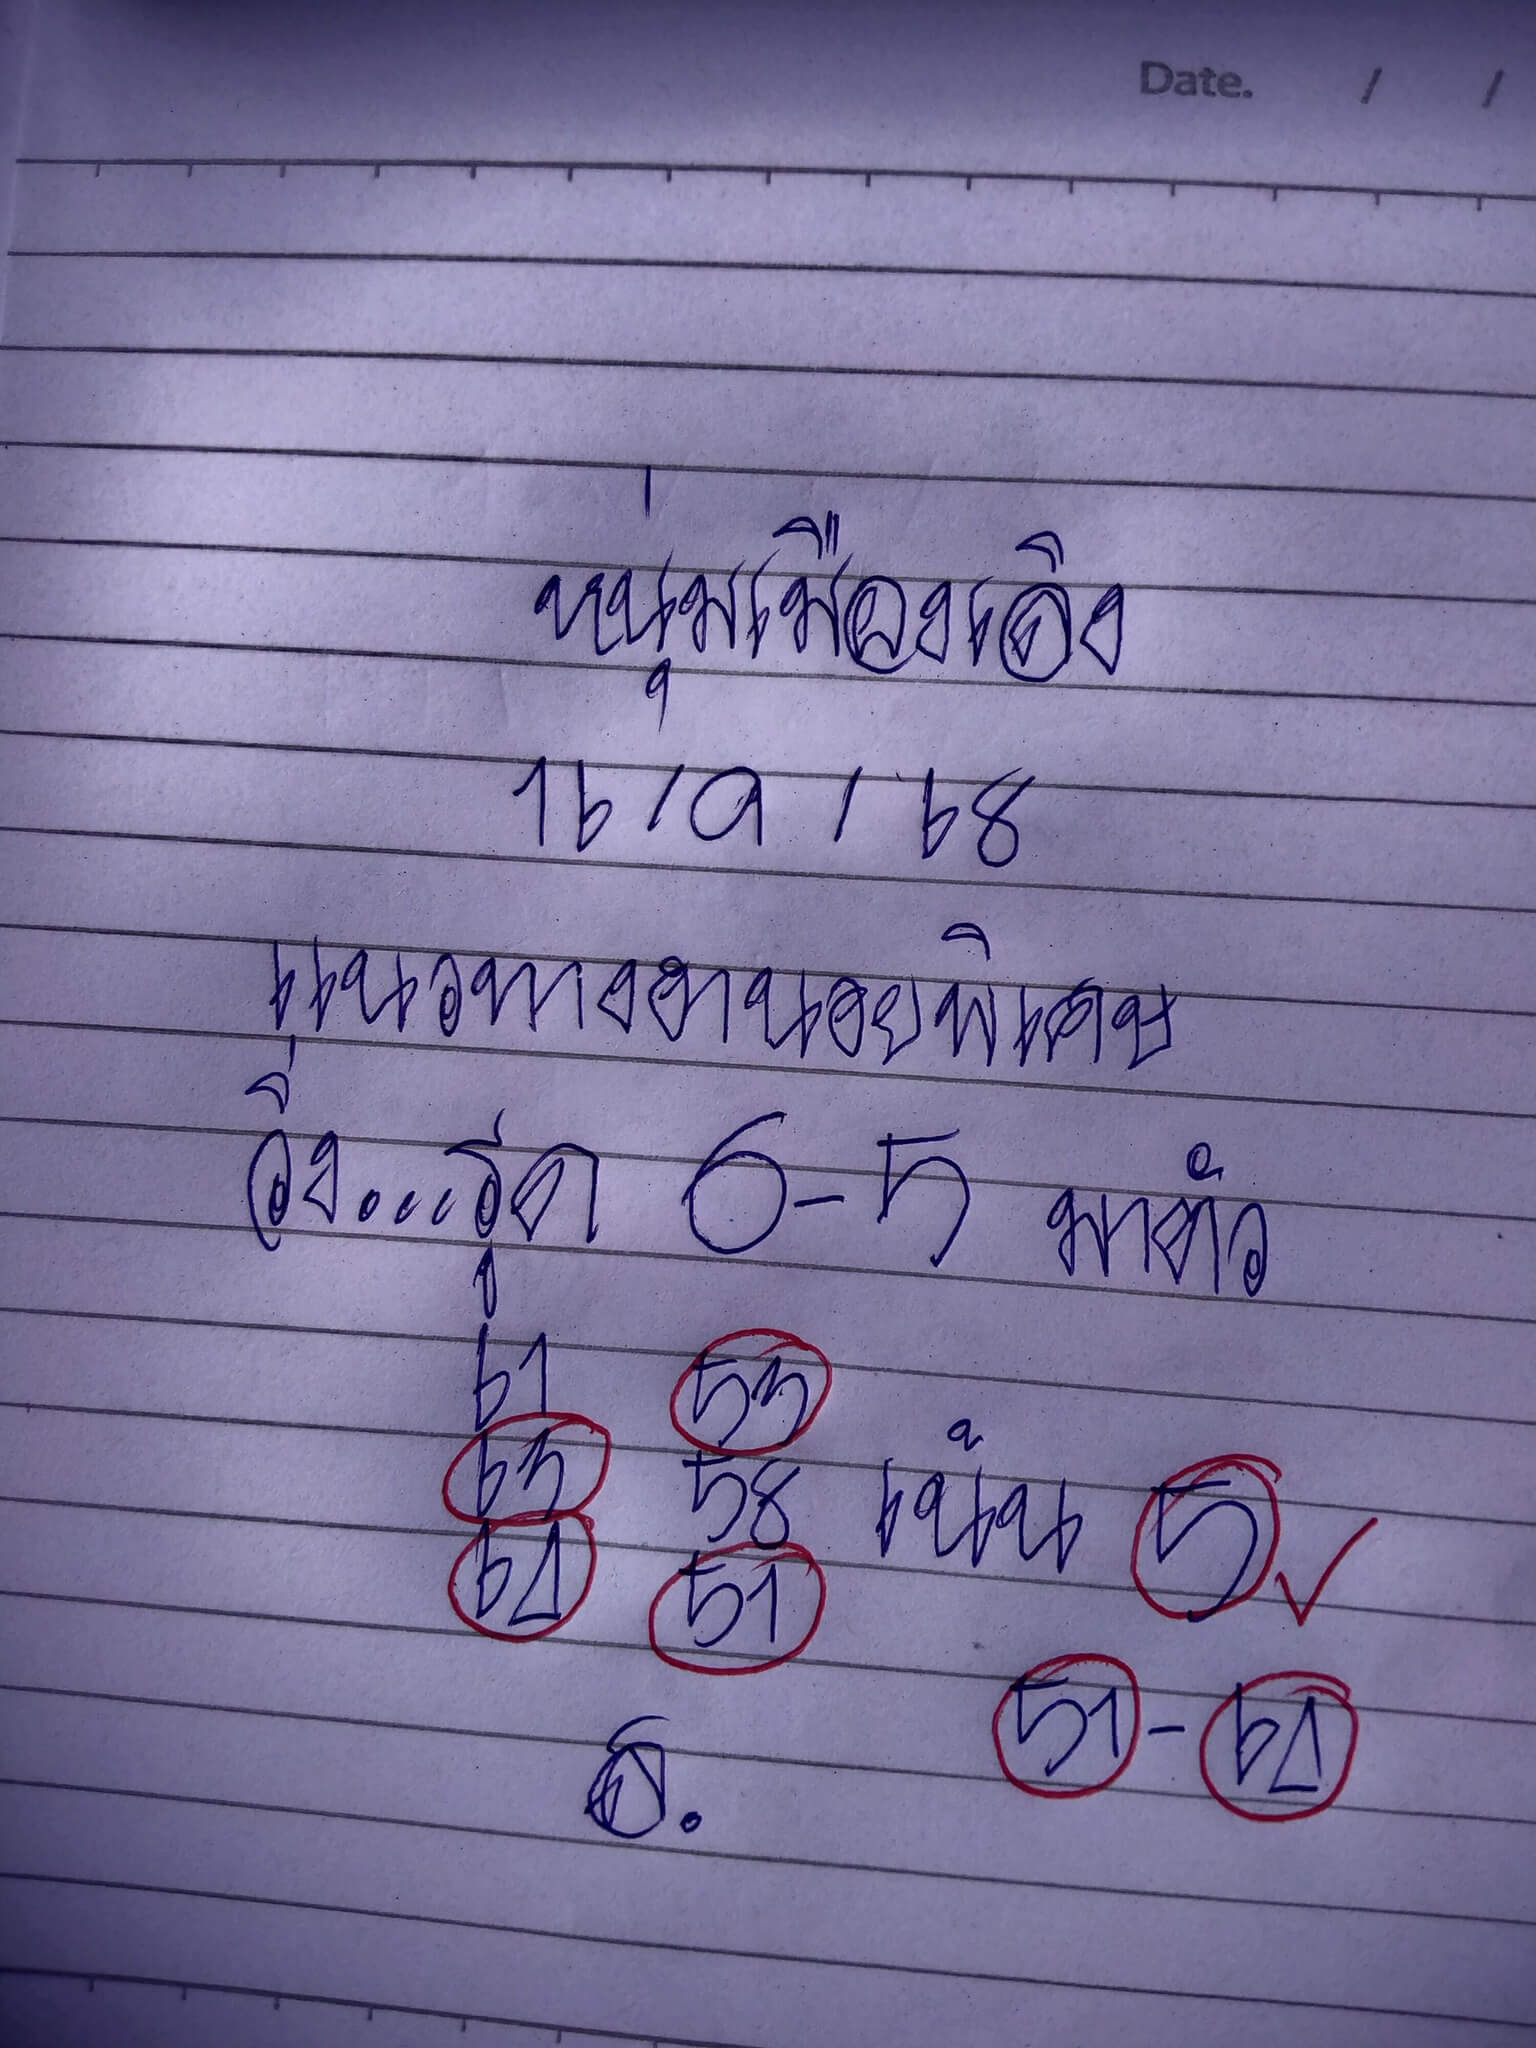 Date. / /
หนุ่มเมืองเอิง
16/9/68
แนวทางฮานอยพิเศษ
วิ่ง...รูด 6-5 มาตัว
61 53
63 58 เน้น 5
62 51
51-62